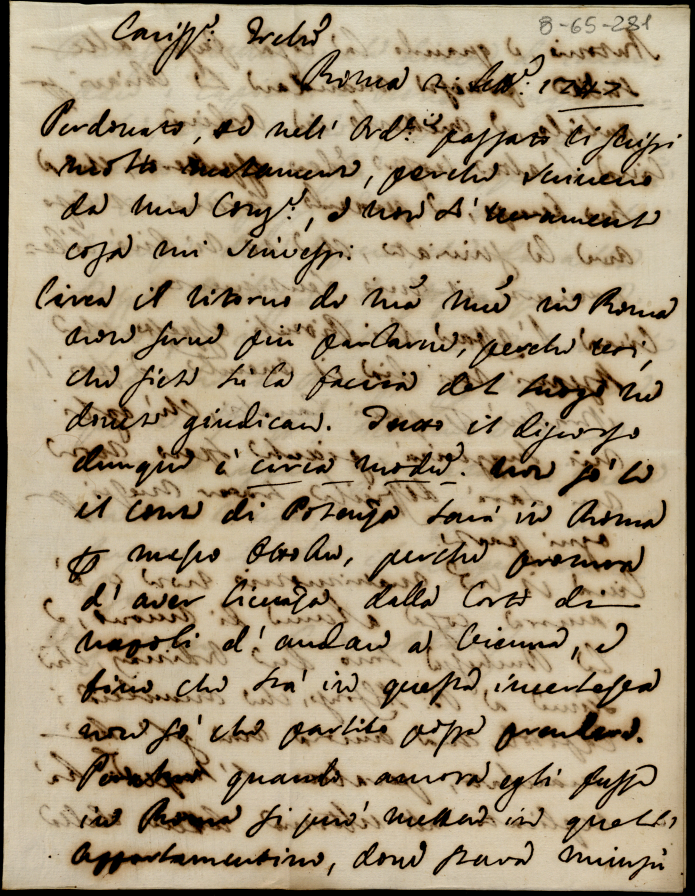 8-65-281
Cariss.º Frelo
Roma 2: Sett.e 1747
Perdonate, se nell' Ord.º passato vi scrissi
molto , perchè venivo
da una Cong.e, e non sò veramente
cosa mi scrivessi.
Circa il ritorno di mia Mad.e in Roma
non serve più parlarne, perchè voi,
che siete su la faccia del luogo ne
dovete giudicare. Tutto il discorso
dunque è circa modum. non sò se
il conte di Potenza sarà in Roma
per mezzo Ottobre, perchè procura
d' aver licenza dalla Corte di
Napoli d' andare a Vienna, e
fino che stà in questa incertezza
non sò che partito possa prendere.
quando ancora egli fusse
in Roma si può mettere in quell'
Appartamentino, dove stava Minzu